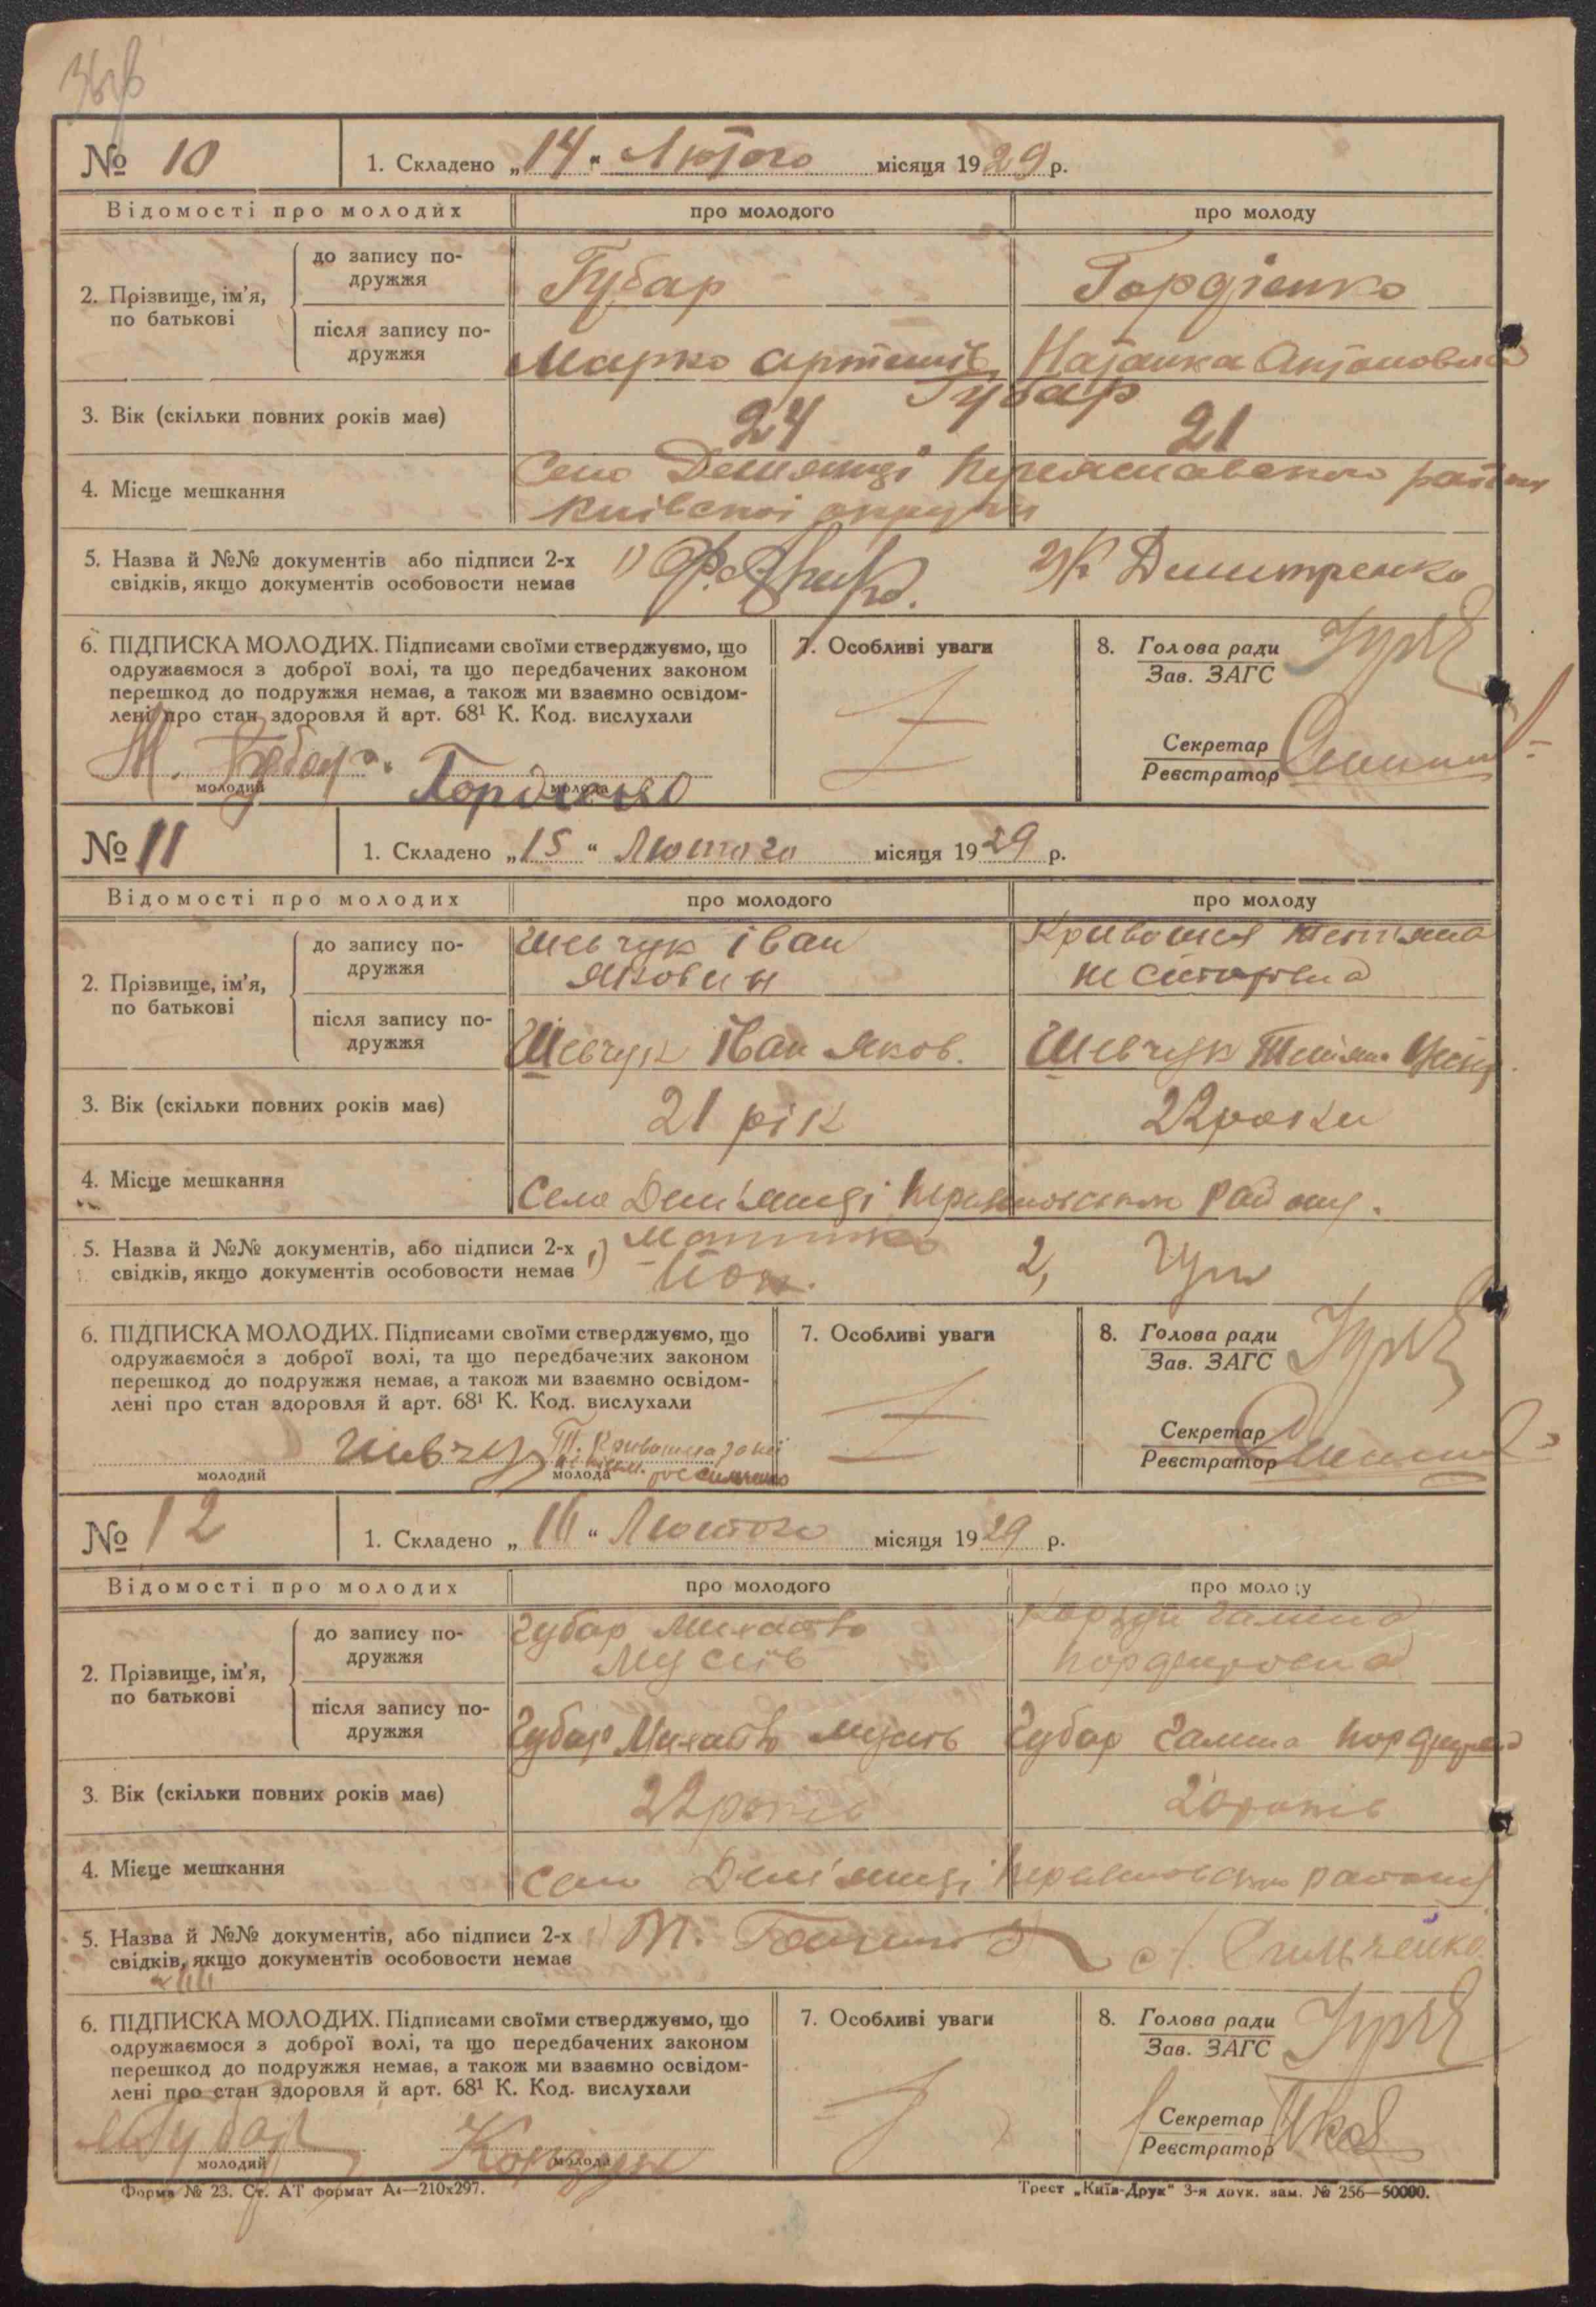 № 10
1. Складено „14" Лютого місяця 1929 р.
Відомості про молодих про молодого про молоду
2. Прізвище, ім'я, по батькові
до запису по-
дружжя
Губар Гордієнко
після запису по-
дружжя
Марко Артемів Наталка Антоновна
Губар
3. Вік (скільки повних років має) 24 21
4. Місце мешкання Село Демянці Переяславского району
Київскої округи
5. Назва й №№ документів або підписи 2-х
свідків, якщо документів особовости немає
1) 2) К Дмитренко
6. ПІДПИСКА МОЛОДИХ. Підписами своїми стверджуємо, що
одружаємося з доброї волі, та що передбачених законом
перешкод до подружжя немає, а також ми взаємно освідом-
лені про стан здоровля й арт. 68¹ К. Код. вислухали
М. Губар. Гордієнко
молодий молода
7. Особливі уваги
8. Голова ради
Зав. ЗАГС
Секретар
Реєстратор
№ 11
1. Складено „15" Лютого місяця 1929 р.
Відомості про молодих про молодого про молоду
2. Прізвище, ім'я,
по батькові
до запису по-
дружжя
Шевчук Іван Кривошея Тетяна
Якович Несторівна
після запису по-
дружжя
Шевчук Іван Яков. Шевчук Тетяна
3. Вік (скільки повних років має) 21 рік 22 роки
4. Місце мешкання Село Дем'янці Переяславського Району.
5. Назва й №№ документів, або підписи 2-х
свідків, якщо документів особовости немає
1) 2,
6. ПІДПИСКА МОЛОДИХ. Підписами своїми стверджуємо, що
одружаємося з доброї волі, та що передбачених законом
перешкод до подружжя немає, а також ми взаємно освідом-
лені про стан здоровля й арт. 68¹ К. Код. вислухали
Шевчук Т. Кривошея
молодий молода
7. Особливі уваги
8. Голова ради
Зав. ЗАГС
Секретар
Реєстратор
№ 12
1. Складено „ " Лютого місяця 1929 р.
Відомості про молодих про молодого про молоду
2. Прізвище, ім'я,
по батькові
до запису по-
дружжя
Губар Михайло Корзун Галина
Мусіїв Порфировна
після запису по-
дружжя
Губар Михайло Мусіїв Губар Галина Порфировна
3. Вік (скільки повних років має) 22 років 20 років
4. Місце мешкання Село Дем'янці Переяславського району
5. Назва й №№ документів, або підписи 2-х
свідків, якщо документів особовости немає
6. ПІДПИСКА МОЛОДИХ. Підписами своїми стверджуємо, що
одружаємося з доброї волі, та що передбачених законом
перешкод до подружжя немає, а також ми взаємно освідом-
лені про стан здоровля й арт. 68¹ К. Код. вислухали
Губар Корзун
молодий молода
7. Особливі уваги
8. Голова ради
Зав. ЗАГС
Секретар
Реєстратор
Форма № 23. Ст. АТ формат А4—210x297.
Трест „Київ-Друк" 3-я друк. зам. № 256—50000.